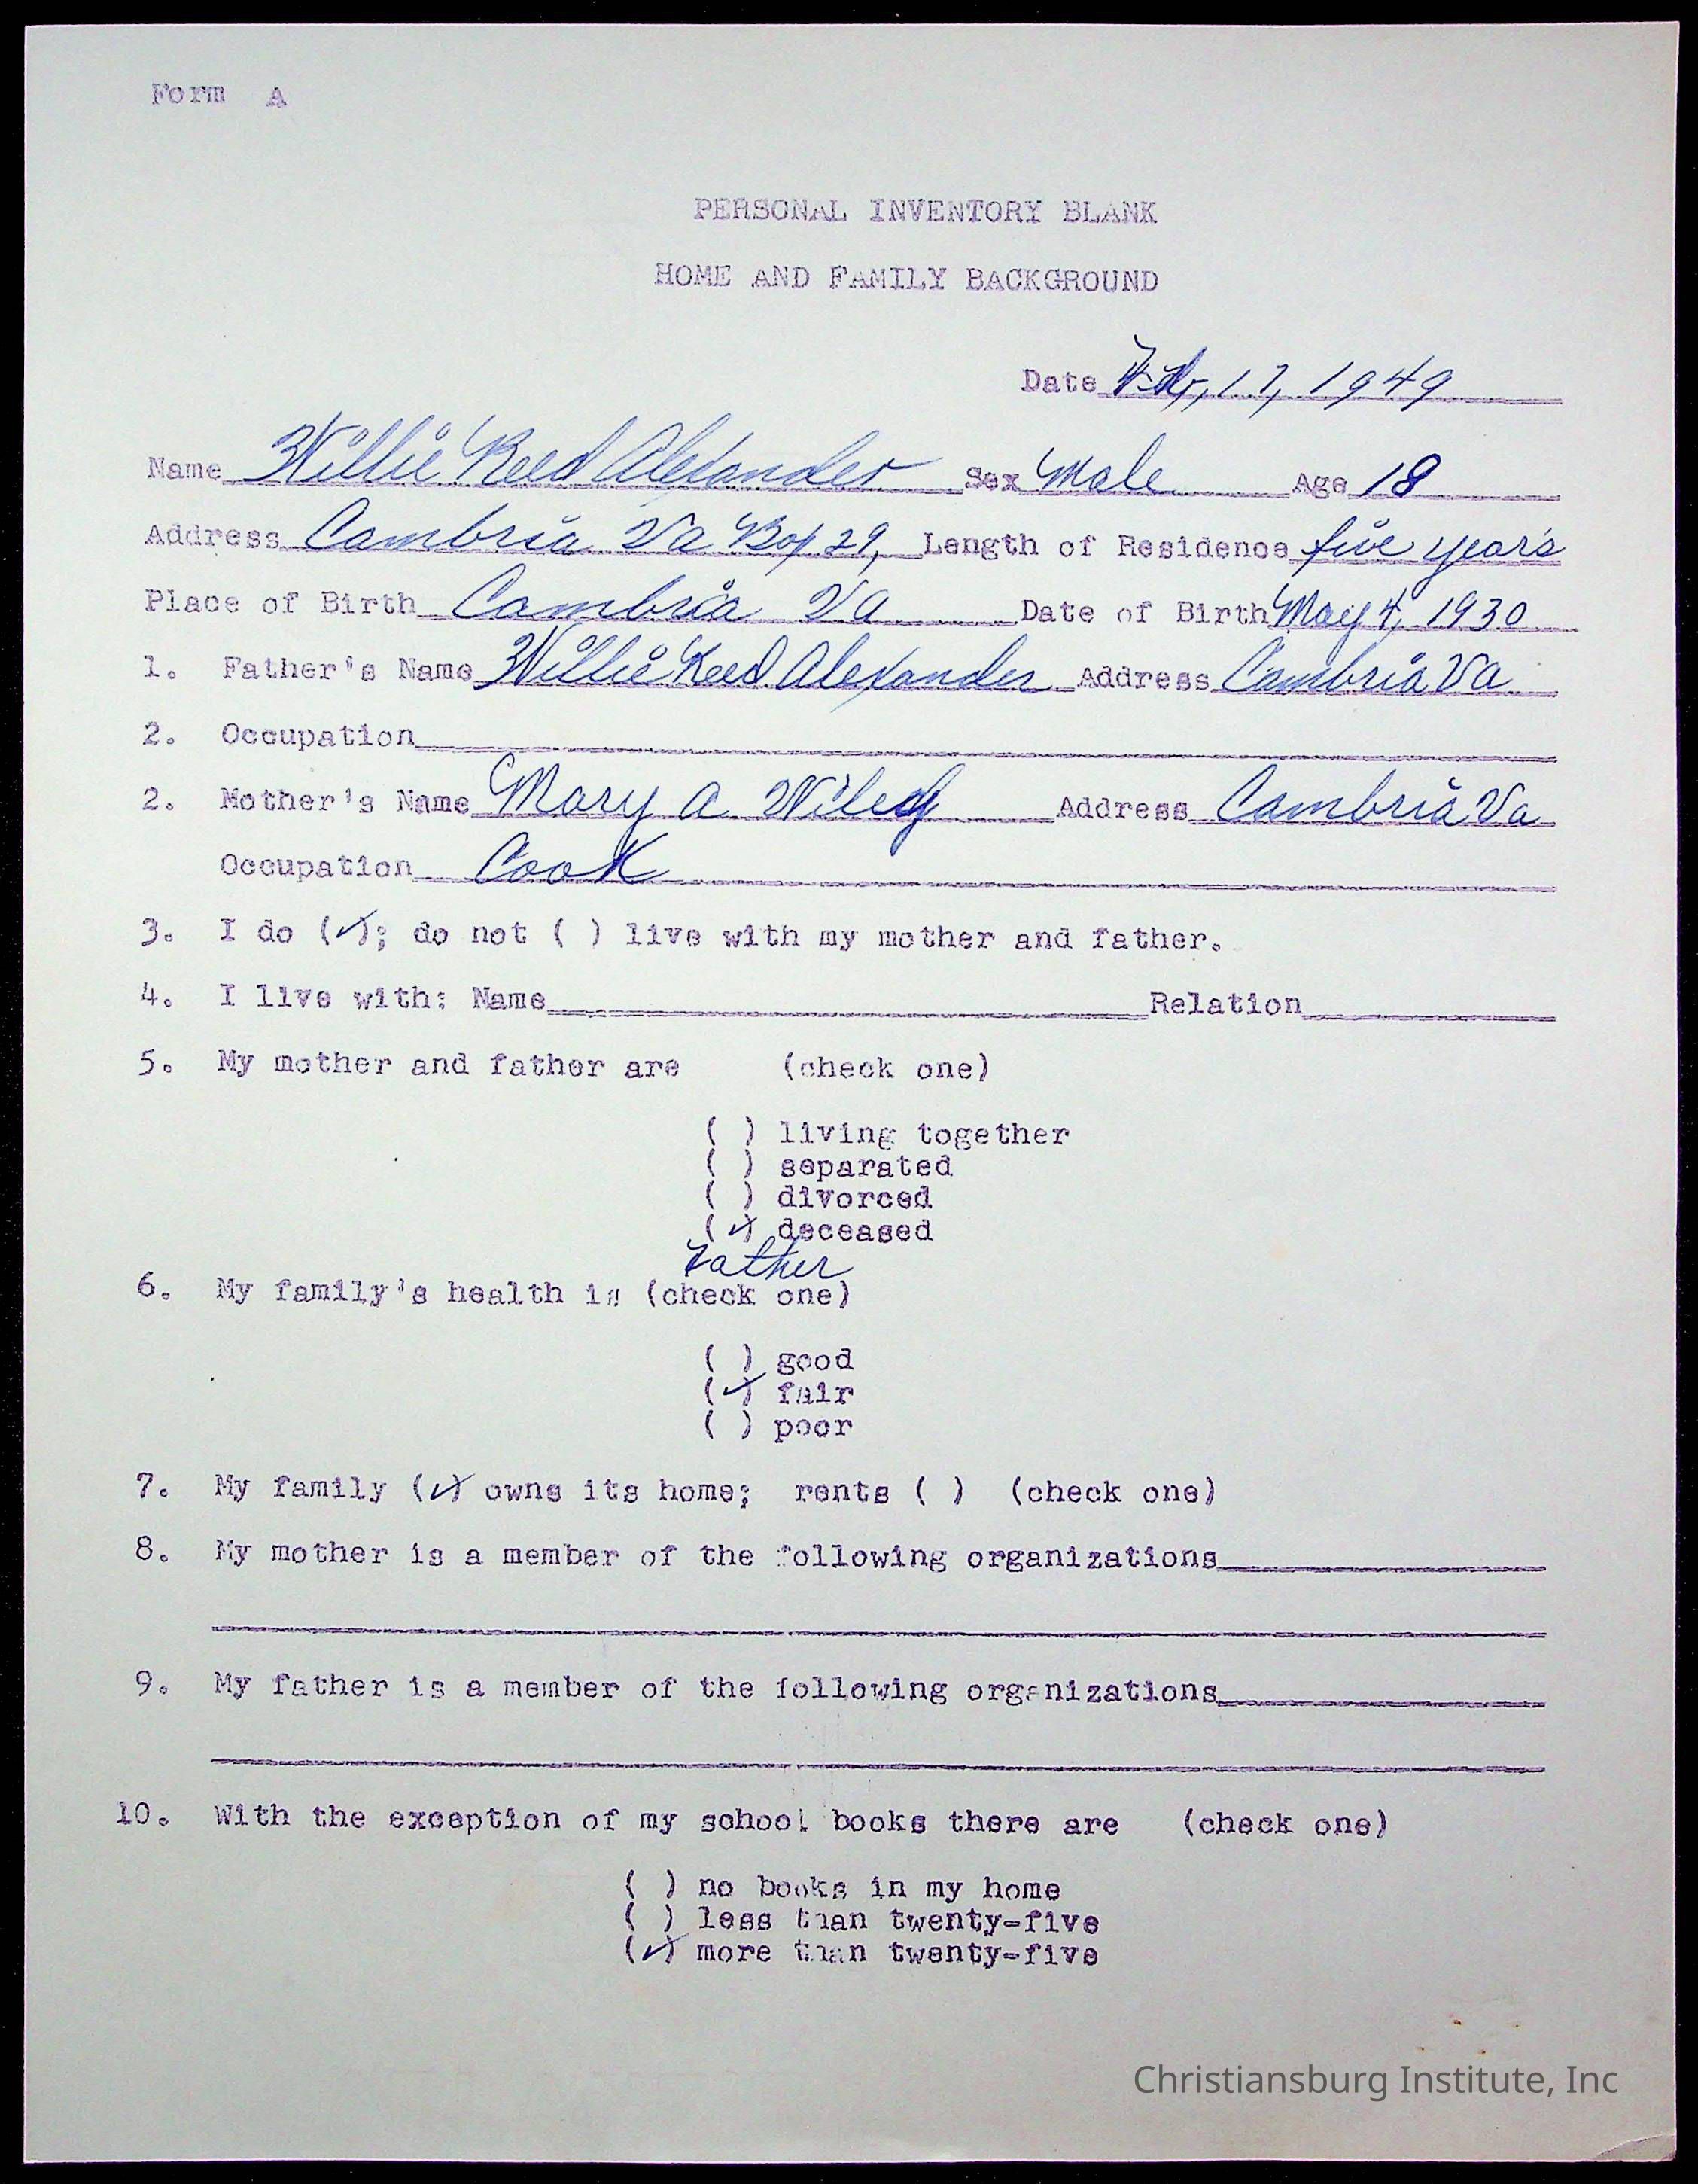 Form A
PERSONAL INVENTORY BLANK
HOME AND FAMILY BACKGROUND
Date Feb, 17, 1949
Name Willie Reed Alexander Sex Male Age 18
Address Cambria Va Box 29, Length of Residence five year's
Place of Birth Cambria Va Date of Birth May 4, 1930
1. Father's Name Willie Reed Alexander Address Cambria Va
2. Occupation
2. Mother's Name Mary A. Wiley Address Cambria Va
Occupation Cook
3. I do (✓); do not ( ) live with my mother and father.
4. I live with: Name Relation
5. My mother and father are (check one)
( ) living together
( ) separated
( ) divorced
(✓) deceased
Father
6. My family's health is (check one)
( ) good
(✓) fair
( ) poor
7. My family (✓) owns its home; rents ( ) (check one)
8. My mother is a member of the following organizations
9. My father is a member of the following organizations
10. With the exception of my school books there are (check one)
( ) no books in my home
( ) less than twenty-five
(✓) more than twenty-five
Christiansburg Institute, Inc